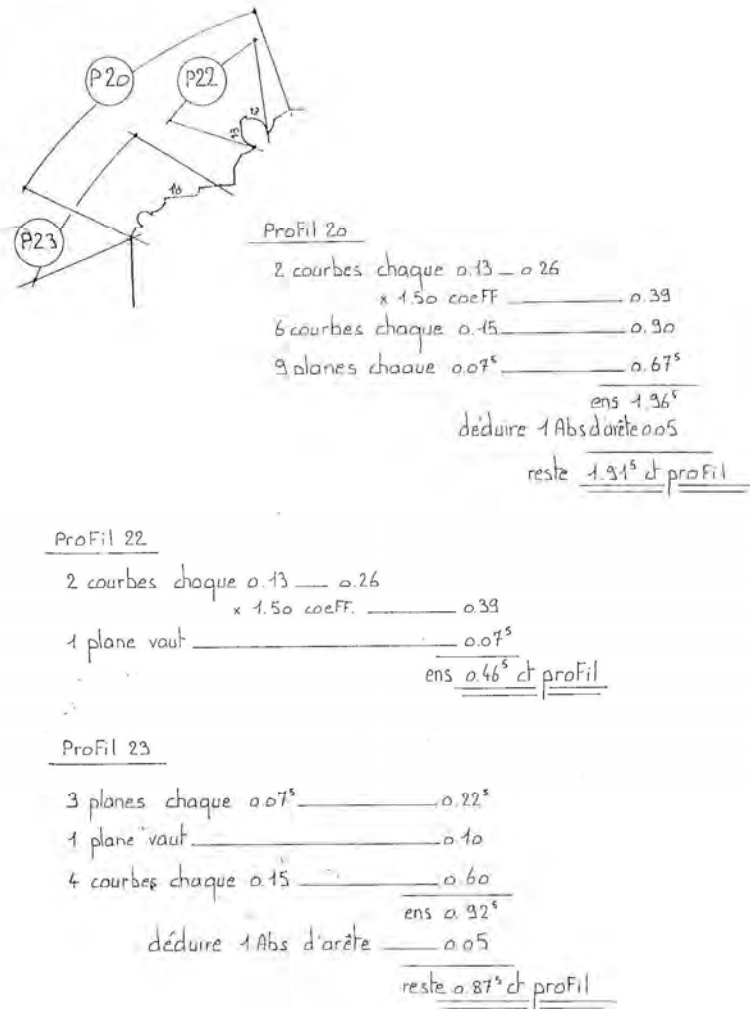 P20
P22
12
13
10
P23
ProFil 20
2 courbes chaque 0.13 _ 0.26
x 1.50 coeFF ____ 0.39
6 courbes chaque 0.15 ____ 0.90
9 planes chaque 0.07⁵ ____ 0.67⁵
ens 1.96⁵
déduire 1 Abs d'arête 0.05
reste 1.91⁵ ct proFil
ProFil 22
2 courbes chaque 0.13 __ 0.26
x 1.50 coeFF. ____ 0.39
1 plane vaut ____ 0.07⁵
ens 0.46⁵ ct proFil
ProFil 23
3 planes chaque 0.07⁵ ____ 0.22⁵
1 plane vaut ____ 0.10
4 courbes chaque 0.15 ____ 0.60
ens 0.92⁵
déduire 1 Abs d'arête ____ 0.05
reste 0.87⁵ ct proFil